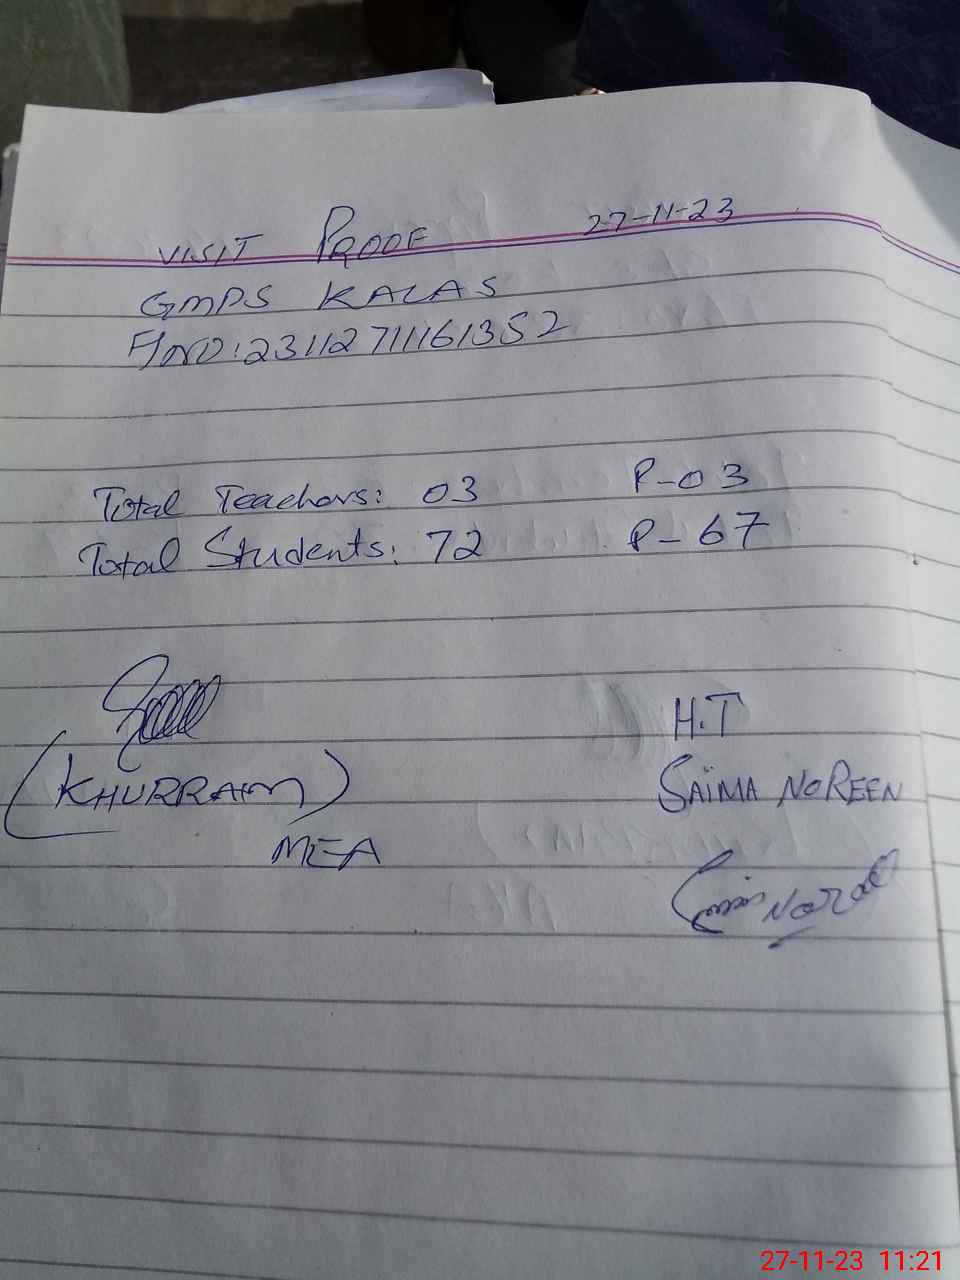 VISIT PROOF 27-11-23
GMPS KALAS
F/NO: 23112711161352
Total Teachers: 03 P-03
Total Students: 72 P-67
H.T
(KHURRAM) SAIMA NOREEN
MEA
27-11-23 11:21